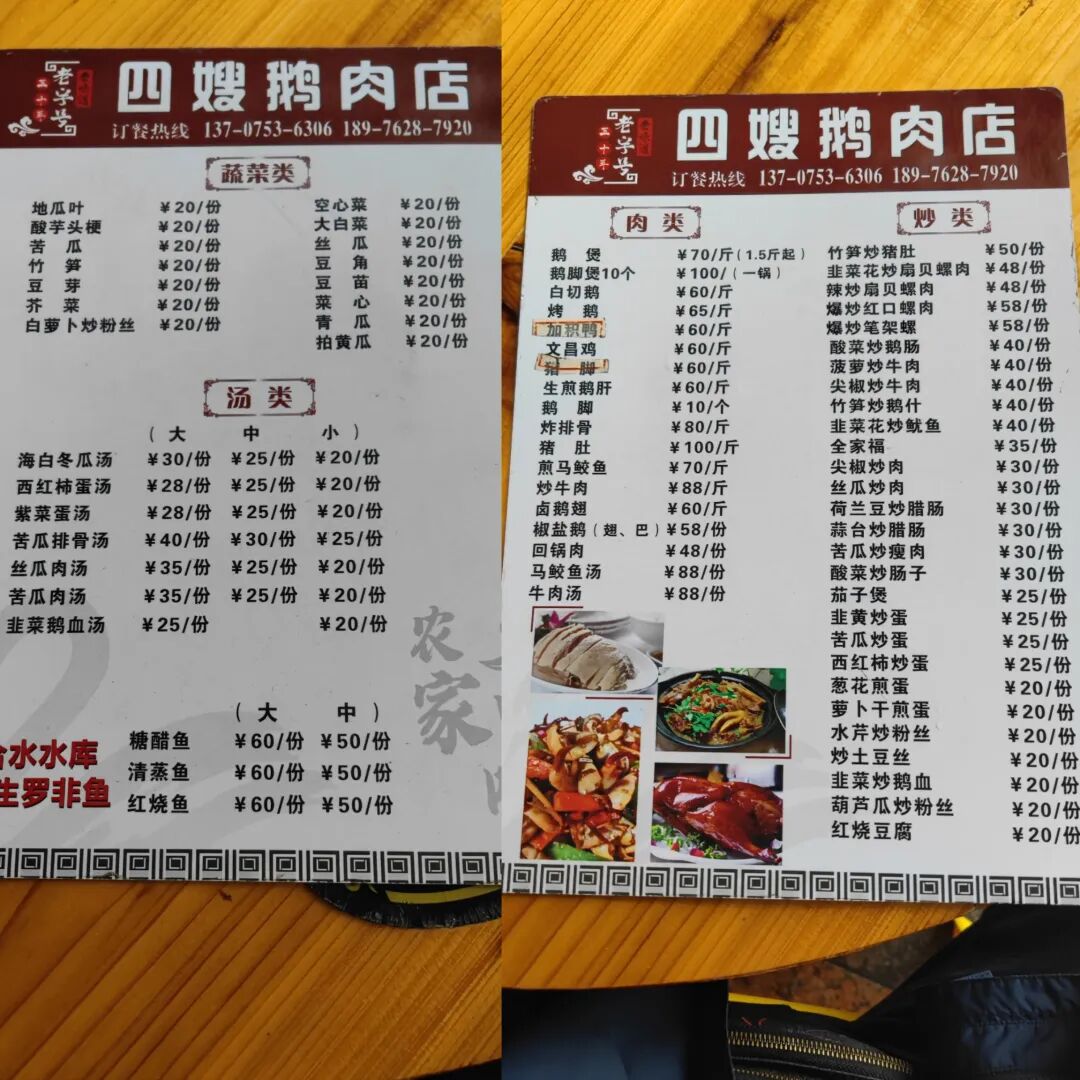 老字号
五十年
四嫂鹅肉店
订餐热线 137-0753-6306 189-7628-7920
蔬菜类
地瓜叶 ¥20/份 空心菜 ¥20/份
酸芋头梗 ¥20/份 大白菜 ¥20/份
苦瓜 ¥20/份 丝瓜 ¥20/份
竹笋 ¥20/份 豆角 ¥20/份
豆芽 ¥20/份 豆苗 ¥20/份
芥菜 ¥20/份 菜心 ¥20/份
白萝卜炒粉丝 ¥20/份 青瓜 ¥20/份
拍黄瓜 ¥20/份
汤类
(大 中 小)
海白冬瓜汤 ¥30/份 ¥25/份 ¥20/份
西红柿蛋汤 ¥28/份 ¥25/份 ¥20/份
紫菜蛋汤 ¥28/份 ¥25/份 ¥20/份
苦瓜排骨汤 ¥40/份 ¥30/份 ¥25/份
丝瓜肉汤 ¥35/份 ¥25/份 ¥20/份
苦瓜肉汤 ¥35/份 ¥25/份 ¥20/份
韭菜鹅血汤 ¥25/份 ¥20/份
农家
(大 中)
水水库
生罗非鱼
糖醋鱼 ¥60/份 ¥50/份
清蒸鱼 ¥60/份 ¥50/份
红烧鱼 ¥60/份 ¥50/份
老字号
五十年
四嫂鹅肉店
订餐热线 137-0753-6306 189-7628-7920
肉类
鹅煲 ¥70/斤(1.5斤起)
鹅脚煲10个 ¥100/(一锅)
白切鹅 ¥60/斤
烤鹅 ¥65/斤
加积鸭 ¥60/斤
文昌鸡 ¥60/斤
猪脚 ¥60/斤
生煎鹅肝 ¥60/斤
鹅脚 ¥10/个
炸排骨 ¥80/斤
猪肚 ¥100/斤
煎马鲛鱼 ¥70/斤
炒牛肉 ¥88/斤
卤鹅翅 ¥60/斤
椒盐鹅(翅、巴) ¥58/份
回锅肉 ¥48/份
马鲛鱼汤 ¥88/份
牛肉汤 ¥88/份
炒类
竹笋炒猪肚 ¥50/份
韭菜花炒扇贝螺肉 ¥48/份
辣炒扇贝螺肉 ¥48/份
爆炒红口螺肉 ¥58/份
爆炒笔架螺 ¥58/份
酸菜炒鹅肠 ¥40/份
菠萝炒牛肉 ¥40/份
尖椒炒牛肉 ¥40/份
竹笋炒鹅什 ¥40/份
韭菜花炒鱿鱼 ¥40/份
全家福 ¥35/份
尖椒炒肉 ¥30/份
丝瓜炒肉 ¥30/份
荷兰豆炒腊肠 ¥30/份
蒜台炒腊肠 ¥30/份
苦瓜炒瘦肉 ¥30/份
酸菜炒肠子 ¥30/份
茄子煲 ¥25/份
韭黄炒蛋 ¥25/份
苦瓜炒蛋 ¥25/份
西红柿炒蛋 ¥25/份
葱花煎蛋 ¥20/份
萝卜干煎蛋 ¥20/份
水芹炒粉丝 ¥20/份
炒土豆丝 ¥20/份
韭菜炒鹅血 ¥20/份
葫芦瓜炒粉丝 ¥20/份
红烧豆腐 ¥20/份